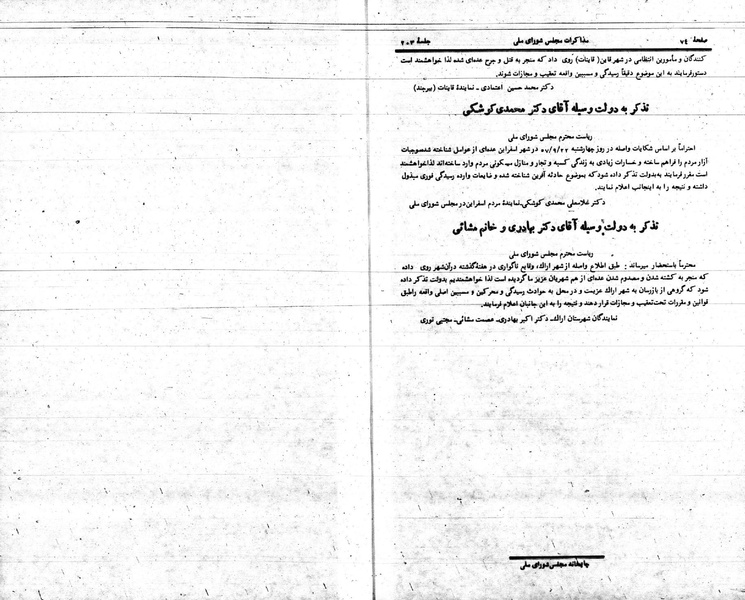 صفحهٔ ۷٤
مذاکرات مجلس شورای ملی
جلسهٔ ۲۰۳
کنندگان و مأمورین انتظامی در شهر قاین (قاینات) روی داد که منجر به قتل و جرح عده‌ای شده لذا خواهشمند است
دستورفرمایند به این موضوع دقیقاً رسیدگی و مسببین واقعه تعقیب و مجازات شوند.
دکتر محمد حسین اعتمادی - نمایندهٔ قاینات (بیرجند)
تذکر به دولت وسیله آقای دکتر محمدی کوشکی
ریاست محترم مجلس شورای ملی
احتراماً بر اساس شکایات واصله در روز چهارشنبه ۵۷/۹/۲۲ در شهر اسفراین عده‌ای از عوامل شناخته شده‌موجبات
آزار مردم را فراهم ساخته و خسارات زیادی به زندگی کسبه و تجار و منازل مسکونی مردم وارد ساخته‌اند لذاخواهشمند
است مقررفرمایند به‌دولت تذکر داده شود که بموضوع حادثه آفرین شناخته شده و ضایعات وارده رسیدگی فوری مبذول
داشته و نتیجه را به اینجانب اعلام نمایند.
دکتر غلامعلی محمدی کوشکی-نمایندهٔ مردم اسفراین در مجلس شورای ملی
تذکر به دولت وسیله آقای دکتر بهادری و خانم مشائی
ریاست محترم مجلس شورای ملی
محترماً باستحضار میرساند: طبق اطلاع واصله از شهر اراك، وقایع ناگواری در هفتهٔ گذشته درآن‌شهر روی داده
که منجر به کشته شدن و مصدوم شدن عده‌ای از هم شهریان عزیز ما گردیده است لذا خواهشمندیم بدولت تذکر داده
شود که گروهی از بازرسان به شهر اراك عزیمت و در محل به حوادث رسیدگی و محرکین و مسببین اصلی واقعه راطبق
قوانین و مقررات تحت‌تعقیب و مجازات قرار دهند و نتیجه را به این جانبان اعلام فرمایند.
نمایندگان شهرستان اراك- دکتر اکبر بهادری- عصمت مشائی- مجتبی نوری
چاپخانه مجلس شورای ملی